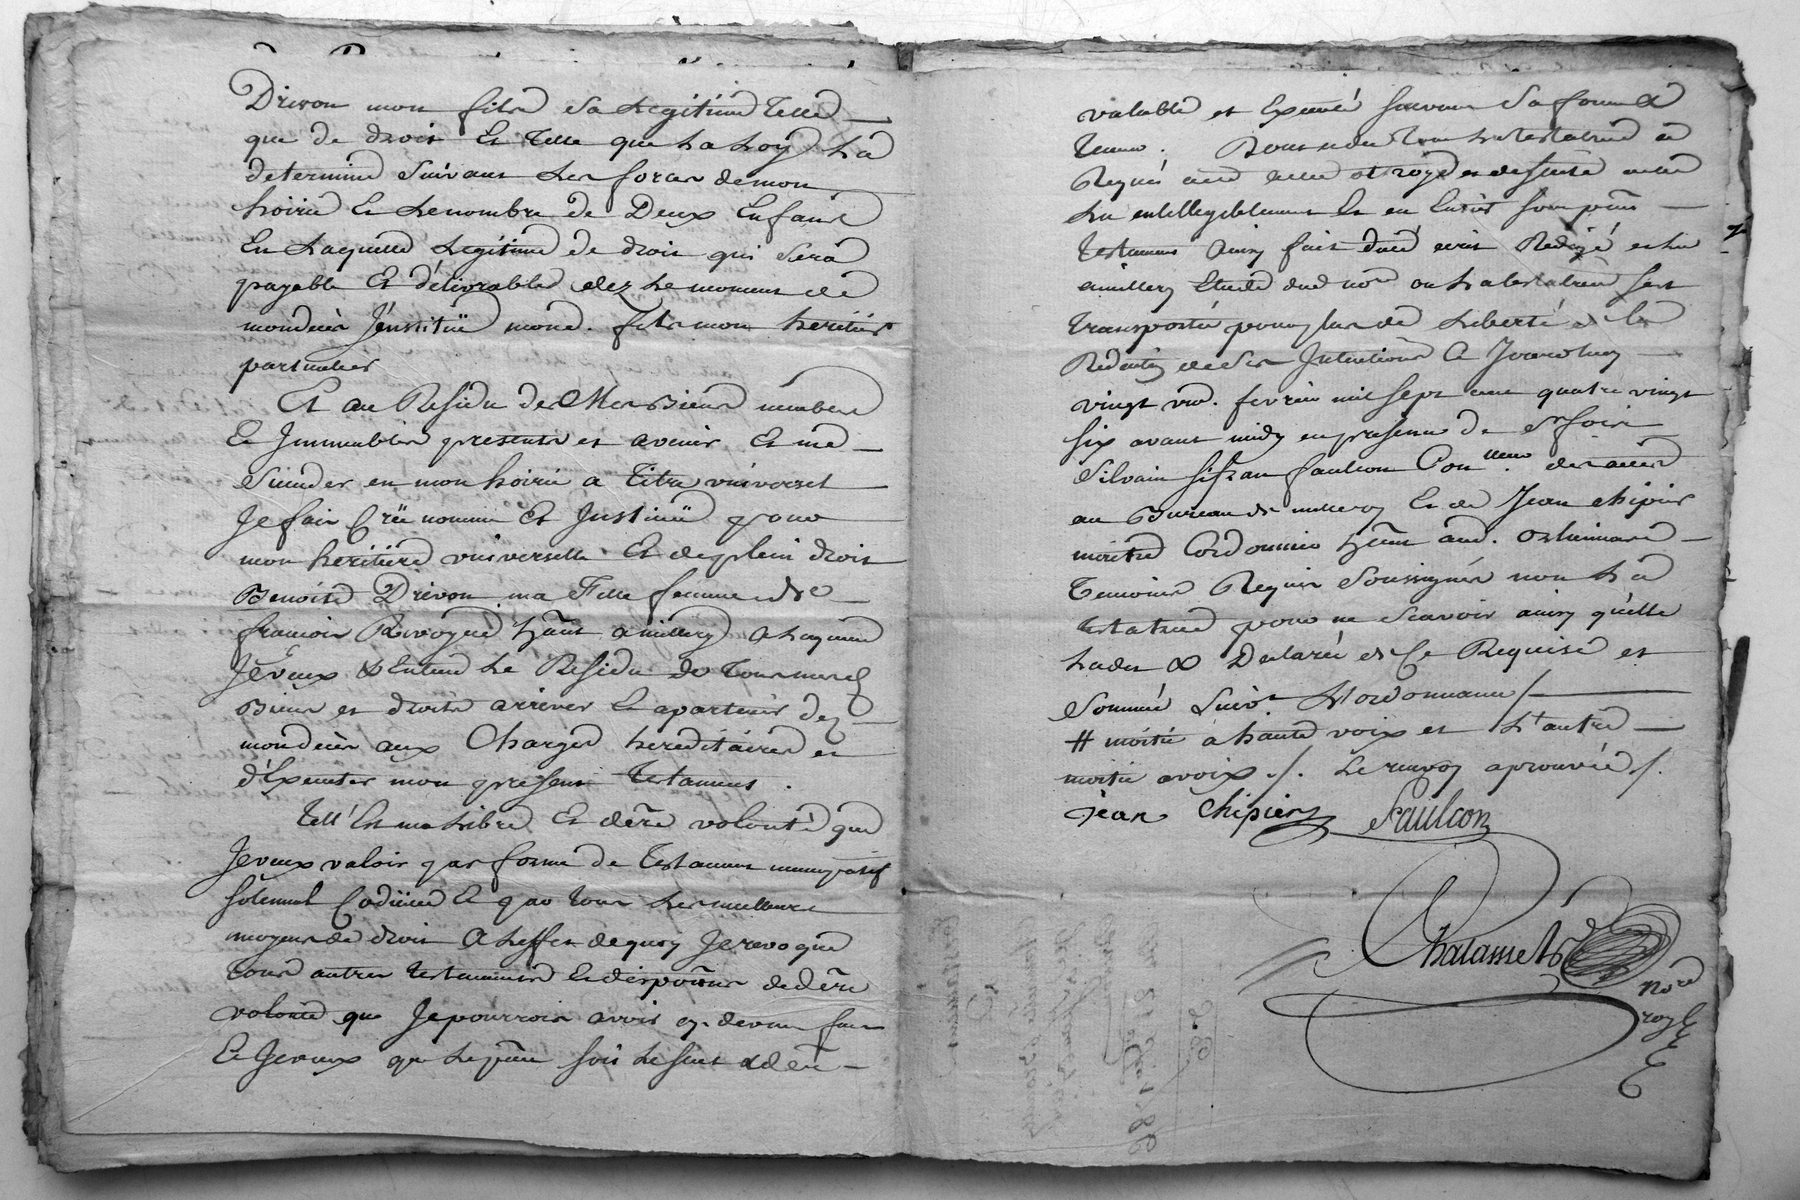 Drivon mon fils sa Legitime telle
que de droit Et telle que La Loy La
determine Suivant Les forces de mon
hoirie Et Le nombre de Deux Enfans
En Laquelle Legitime de droit qui Sera
payable Et délivrable dez Le moment de
mon decès J'enstitüe mond. fils mon heritier
particulier
Et au Residu de Mes Biens meubles
Et Immeubles presents et avenir Et me
Succeder en mon hoirie a Titre vniversel
Je fais Crëe nomme Et Justitüe pour
mon heritiere vniverselle Et de plein droit
Benoite Drivon ma Fille femme de
francois Revoyne hānt a millery A Laquelle
Je veux & Entend Le Residu de Tous mes d.
Biens et droits arriver Et apartenir dez
mon decès aux Charges hereditaires et
d'Executer mon present testament.
Tell' Est ma Libre Et dēre volonté que
Je veux valoir par forme de Testament nuncupatif
solennel Codicile Et par tous Les meilleurs
moyens de droit A Leffet de quoy Je revoque
tous autres testaments Et dispōons de dēre
volonté que Je pourrois avoir cy-devant fait
Et Je veux que Le pñt soit Le seul & dēr
valable et Executé suivant Sa forme &
teneur. Dont et du tout La testatrice a
Requis acte a elle octroyé et de suite avons
Lu entelligiblement Et en Entier son pñt
testament Ainsy fait dicté ecrit Redigé et Lu
a millery Etude dud noʳᵉ ou La testatrice s'est
transportée pour plus de Liberté
de Ses Intentions A Jourdhuy
vingt vn d. fevrier mil sept cent quatre vingt
six avant midy en presence de Sʳ
Silvain faulcon Conᵗʳᵒˡˡᵉᵘʳ des actes
au Bureau de millery Et de Jean chipier
maitre Cordonnier hānt aud.
temoins Requis Soussignés non La
testatrice pour ne Scavoir ainsy qu'elle
La dit & Declaré de Ce Requise et
Sommée Suivᵗ L'ordonnance /
# moitié a haute voix et L'autre
moitié a voix ./. Le renvoy aprouvée ./.
jean Chipier Faulcon
Nore
roy